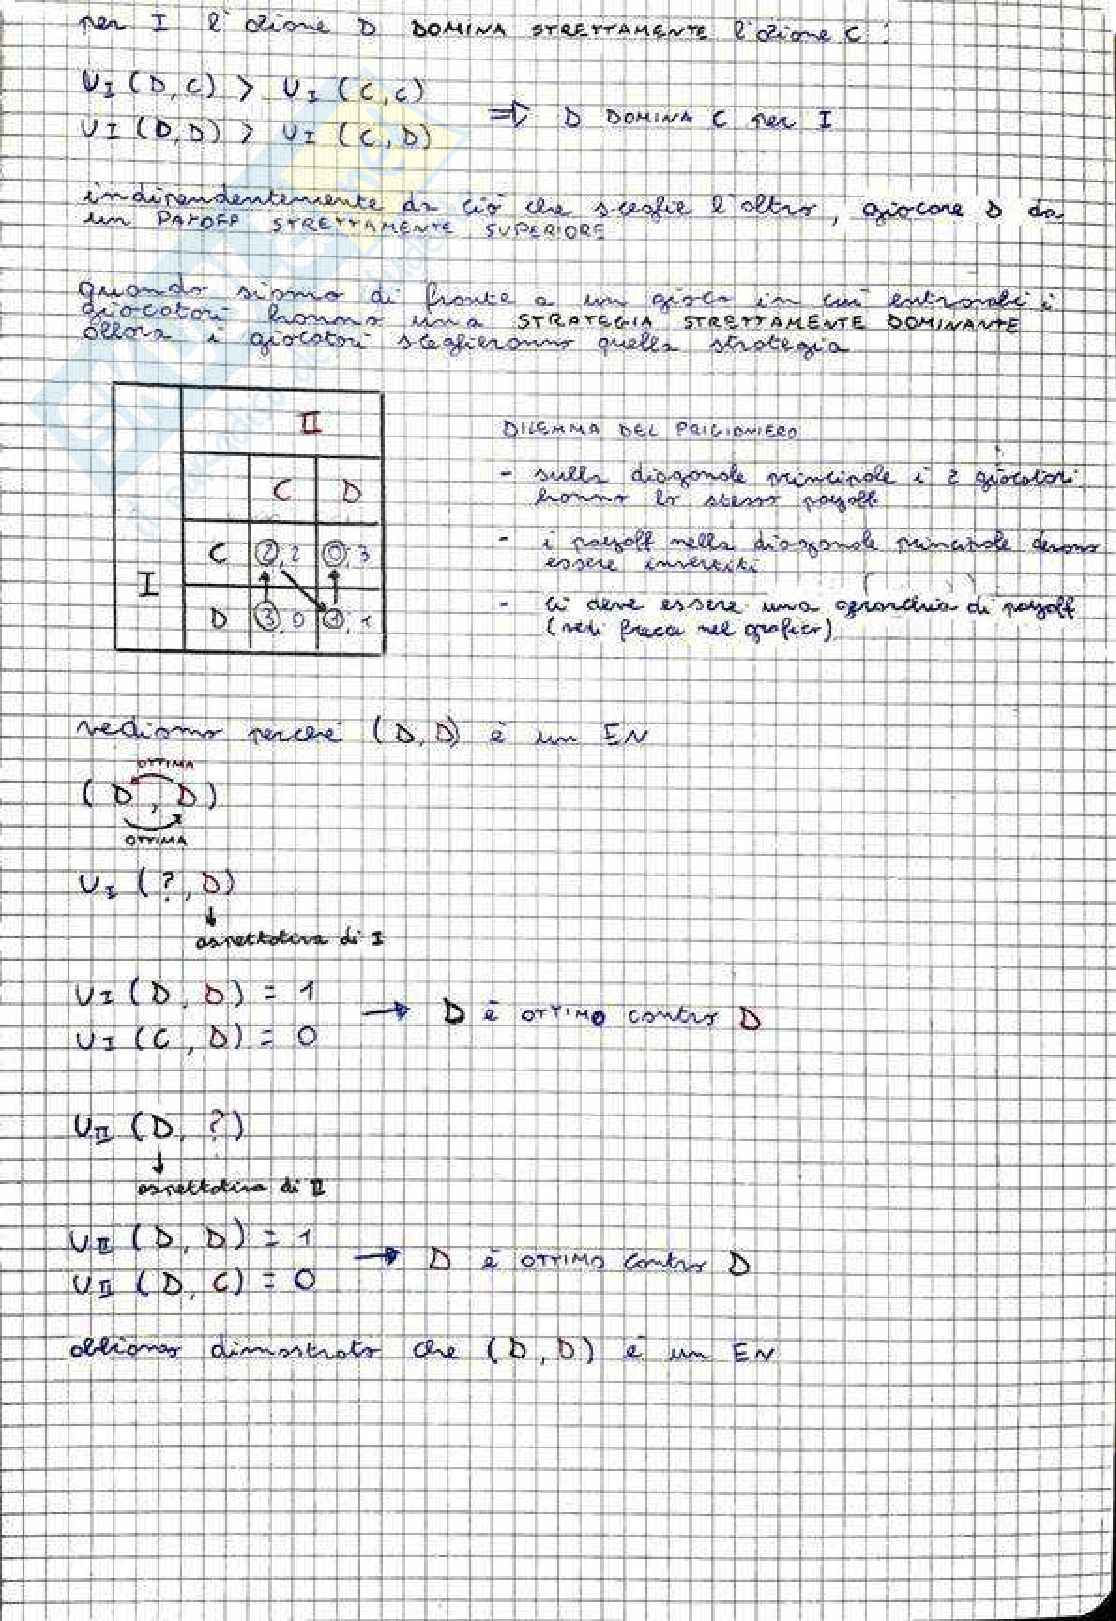 per I l'azione D DOMINA STRETTAMENTE l'azione C:
U_I (D, C) > U_I (C, C)
U_I (D, D) > U_I (C, D)
=> D DOMINA C per I
indipendentemente da ciò che sceglie l'altro, giocare D da
un PAYOFF STRETTAMENTE SUPERIORE
quando siamo di fronte a un gioco in cui entrambi i
giocatori hanno una STRATEGIA STRETTAMENTE DOMINANTE
allora i giocatori sceglieranno quella strategia
II
C D
I
C 2, 2 0, 3
D 3, 0 1, 1
DILEMMA DEL PRIGIONIERO
- sulla diagonale principale i 2 giocatori
hanno lo stesso payoff
- i payoff nella diagonale principale devono
essere invertiti
- ci deve essere una gerarchia di payoff
(vedi frecce nel grafico)
vediamo perché (D, D) è un EN
OTTIMA
(D, D)
OTTIMA
U_I (?, D)
aspettativa di I
U_I (D, D) = 1
U_I (C, D) = 0
→ D è OTTIMO contro D
U_II (D, ?)
aspettativa di II
U_II (D, D) = 1
U_II (D, C) = 0
→ D è OTTIMO contro D
abbiamo dimostrato che (D, D) è un EN